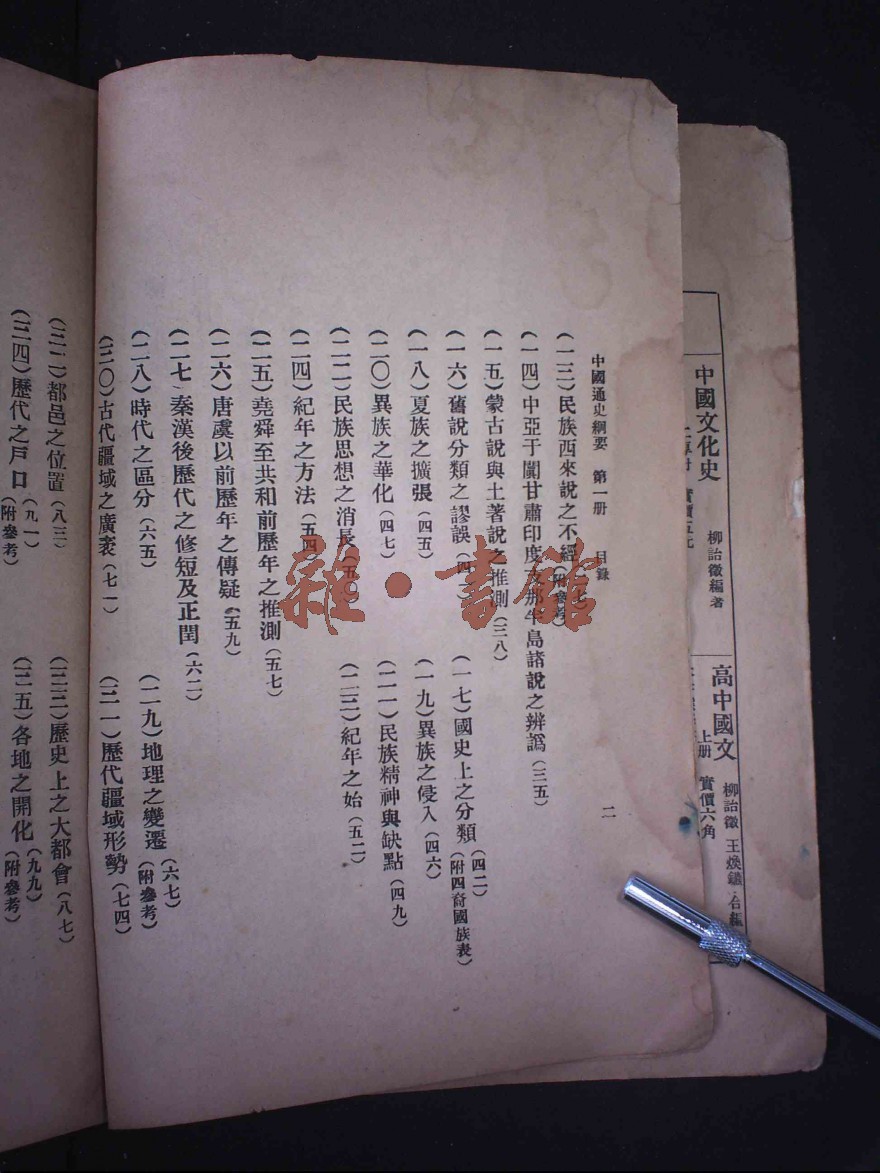 中國文化史
柳詒徵編著
高中國文
上册
實價六角
柳詒徵
王煥鑣
中國通史綱要 第一册 目錄 二
(一三)民族西來說之不經(附參考)
(一四)中亞于闐甘肅印度支那半島諸說之辨譌(三五)
(一五)蒙古說與土著說之推測(三八)
(一六)舊說分類之謬誤
(一七)國史上之分類(四二)(附四裔國族表)
(一八)夏族之擴張(四五)
(一九)異族之侵入(四六)
(二〇)異族之華化(四七)
(二一)民族精神與缺點(四九)
(二二)民族思想之消長(五〇)
(二三)紀年之始(五二)
(二四)紀年之方法(五四)
(二五)堯舜至共和前歷年之推測(五七)
(二六)唐虞以前歷年之傳疑(五九)
(二七)秦漢後歷代之修短及正閏(六二)
(二八)時代之區分(六五)
(二九)地理之變遷(六七)(附參考)
(三〇)古代疆域之廣袤(七一)
(三一)歷代疆域形勢(七四)
(三二)都邑之位置(八三)
(三三)歷史上之大都會(八七)
(三四)歷代之戶口(九一)(附參考)
(三五)各地之開化(九九)(附參考)
雜·書館